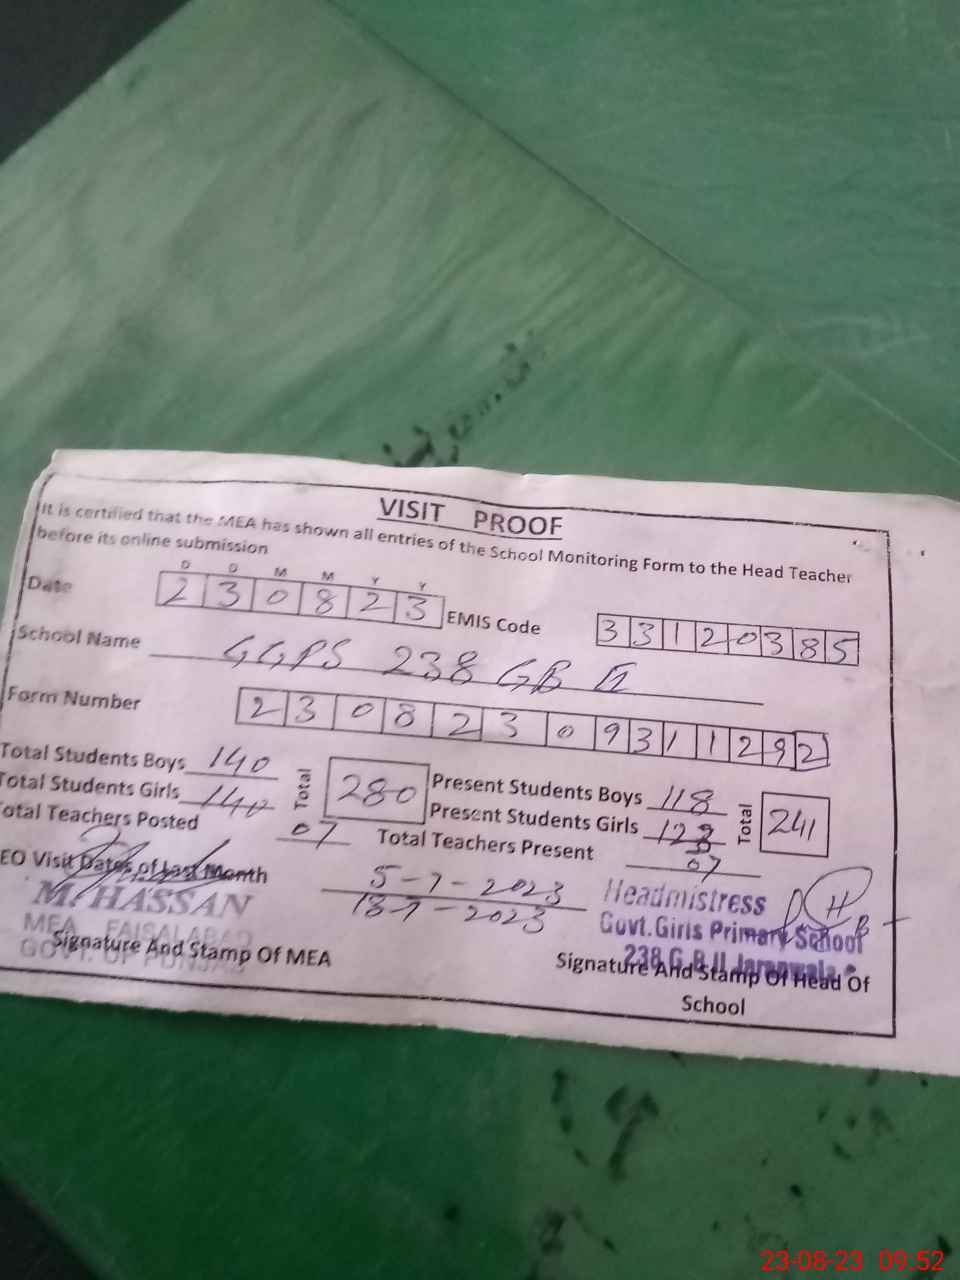 VISIT PROOF
It is certified that the MEA has shown all entries of the School Monitoring Form to the Head Teacher
before its online submission
D D M M Y Y
Date 2 3 0 8 2 3 EMIS Code 3 3 1 2 0 3 8 5
School Name GGPS 238 GB II
Form Number 2 3 0 8 2 3 0 9 3 1 1 2 9 2
Total Students Boys 140 Total 280 Present Students Boys 118 Total 241
Total Students Girls 140 Present Students Girls 123
otal Teachers Posted 07 Total Teachers Present 07
EO Visit Dates of Last Month 5-7-2023
13-7-2023
M. HASSAN
MEA FAISALABAD
GOVT. OF PUNJAB
Signature And Stamp Of MEA
Headmistress
Govt.Girls Primary School
238 G.B II Jaranwala
Signature And Stamp Of Head Of
School
23-08-23 09:52